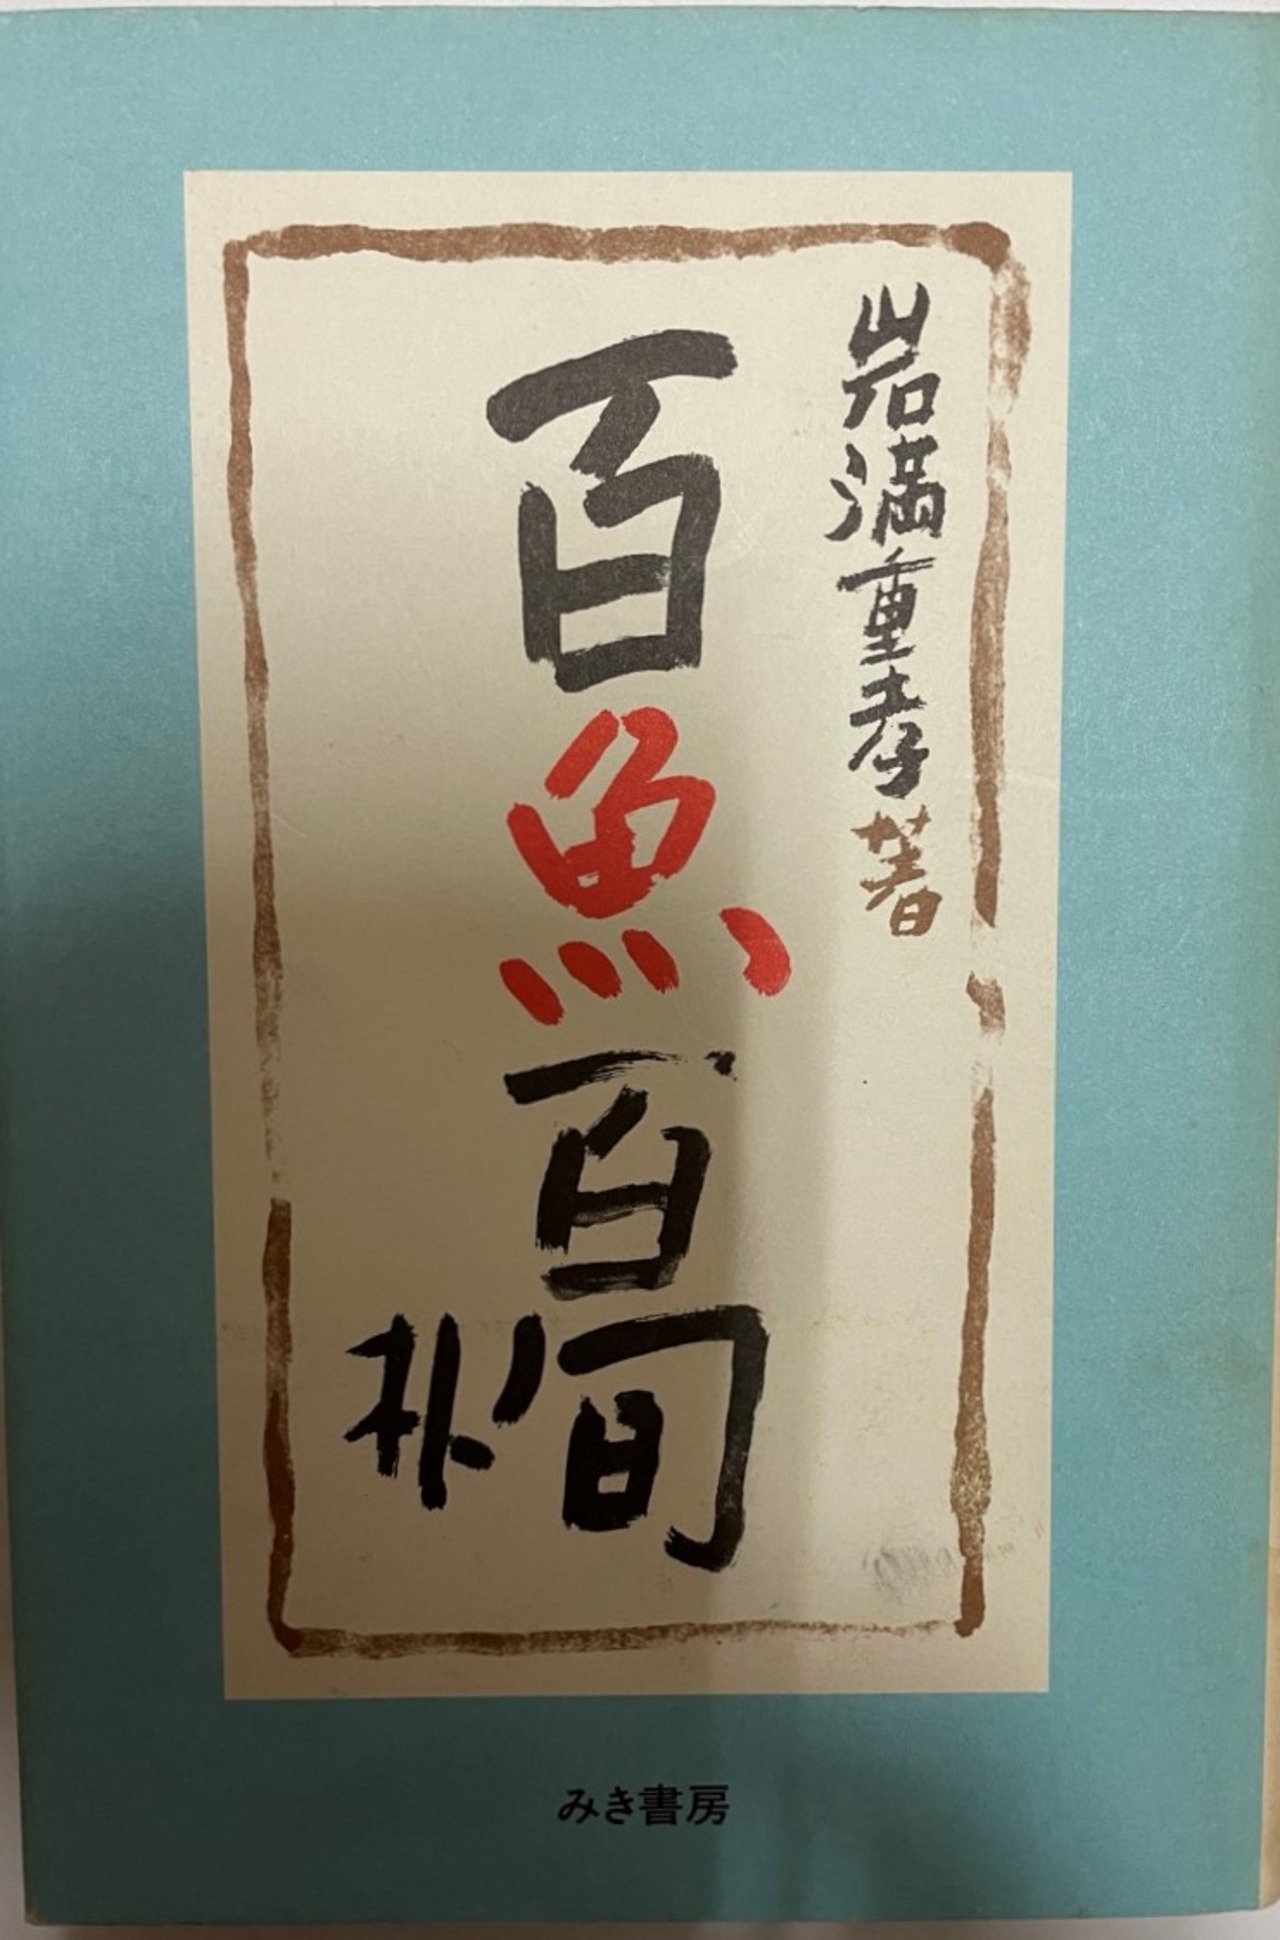 岩満重孝著
百魚百
みき書房